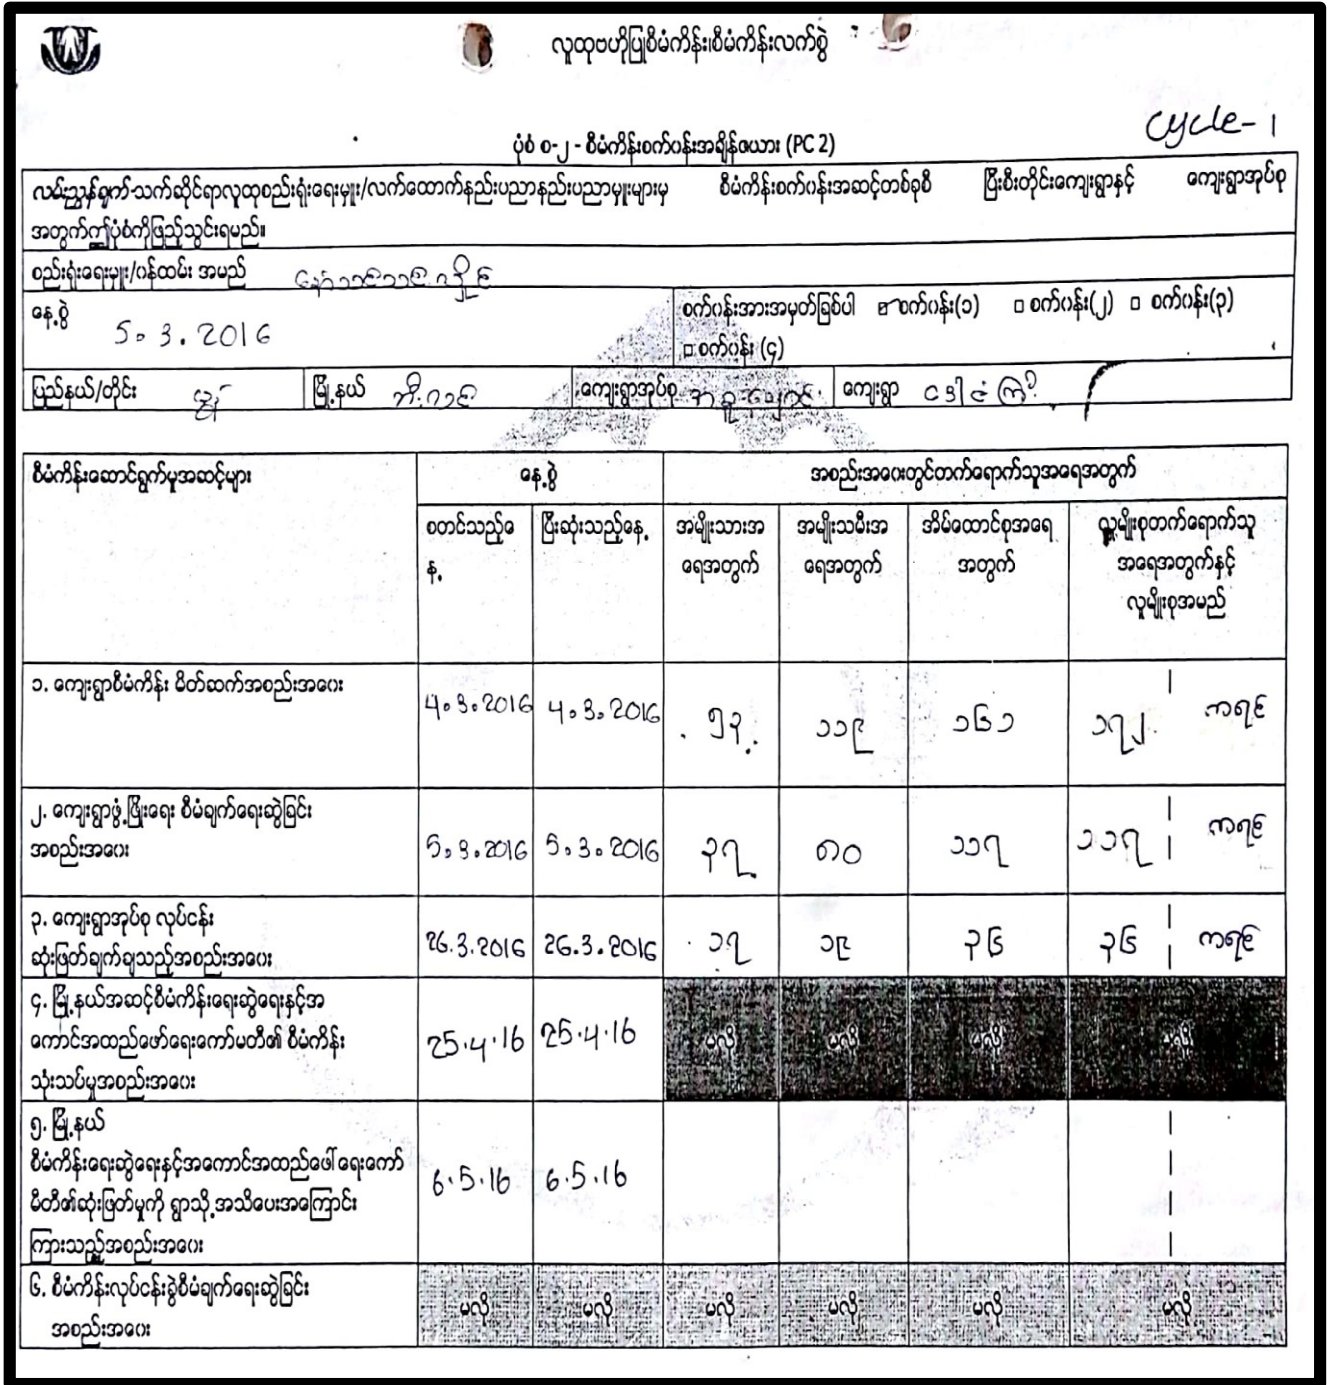 လူထုဗဟိုပြုစီမံကိန်း၊စီမံကိန်းလက်စွဲ
cycle-1
ပုံစံ စ-၂ - စီမံကိန်းစက်ဝန်းအချိန်ဇယား (PC 2)
လမ်းညွှန်ချက် သက်ဆိုင်ရာလူထုစည်းရုံးရေးမှူး/လက်ထောက်နည်းပညာနည်းပညာမှူးများမှ စီမံကိန်းစက်ဝန်းအဆင့်တစ်ခုစီ ပြီးစီးတိုင်းကျေးရွာနှင့် ကျေးရွာအုပ်စု
အတွက်ဤပုံစံကိုဖြည့်သွင်းရမည်။
စည်းရုံးရေးမှူး/ဝန်ထမ်း အမည်
နေ့စွဲ 5.3.2016 စက်ဝန်းအားအမှတ်ခြစ်ပါ စက်ဝန်း(၁) □ စက်ဝန်း(၂) □ စက်ဝန်း(၃)
□ စက်ဝန်း (၄)
ပြည်နယ်/တိုင်း မွန် မြို့နယ် ဘီးလင်း ကျေးရွာအုပ်စု ကျေးရွာ
စီမံကိန်းဆောင်ရွက်မှုအဆင့်များ နေ့စွဲ အစည်းအဝေးတွင်တက်ရောက်သူအရေအတွက်
စတင်သည့်နေ့ ပြီးဆုံးသည့်နေ့ အမျိုးသားအရေအတွက် အမျိုးသမီးအရေအတွက် အိမ်ထောင်စုအရေအတွက် လူမျိုးစုတက်ရောက်သူအရေအတွက်နှင့် လူမျိုးစုအမည်
၁. ကျေးရွာစီမံကိန်း မိတ်ဆက်အစည်းအဝေး 4.3.2016 4.3.2016 ၅၃ ၁၁၉ ၁၆၁ ၁၇၂ ကရင်
၂. ကျေးရွာဖွံ့ဖြိုးရေး စီမံချက်ရေးဆွဲခြင်း
အစည်းအဝေး 5.3.2016 5.3.2016 ၃၇ ၈၀ ၁၁၇ ၁၁၇ ကရင်
၃. ကျေးရွာအုပ်စု လုပ်ငန်း
ဆုံးဖြတ်ချက်ချသည့်အစည်းအဝေး 26.3.2016 26.3.2016 ၁၇ ၁၉ ၃၆ ၃၆ ကရင်
၄. မြို့နယ်အဆင့်စီမံကိန်းရေးဆွဲရေးနှင့်အ
ကောင်အထည်ဖော်ရေးကော်မတီ၏ စီမံကိန်း
သုံးသပ်မှုအစည်းအဝေး 25.4.16 25.4.16 မလို မလို မလို မလို
၅. မြို့နယ်
စီမံကိန်းရေးဆွဲရေးနှင့်အကောင်အထည်ဖေါ်ရေးကော်
မိတီ၏ဆုံးဖြတ်မှုကို ရွာသို့အသိပေးအကြောင်း
ကြားသည့်အစည်းအဝေး 6.5.16 6.5.16
၆. စီမံကိန်းလုပ်ငန်းခွဲစီမံချက်ရေးဆွဲခြင်း
အစည်းအဝေး မလို မလို မလို မလို မလို မလို